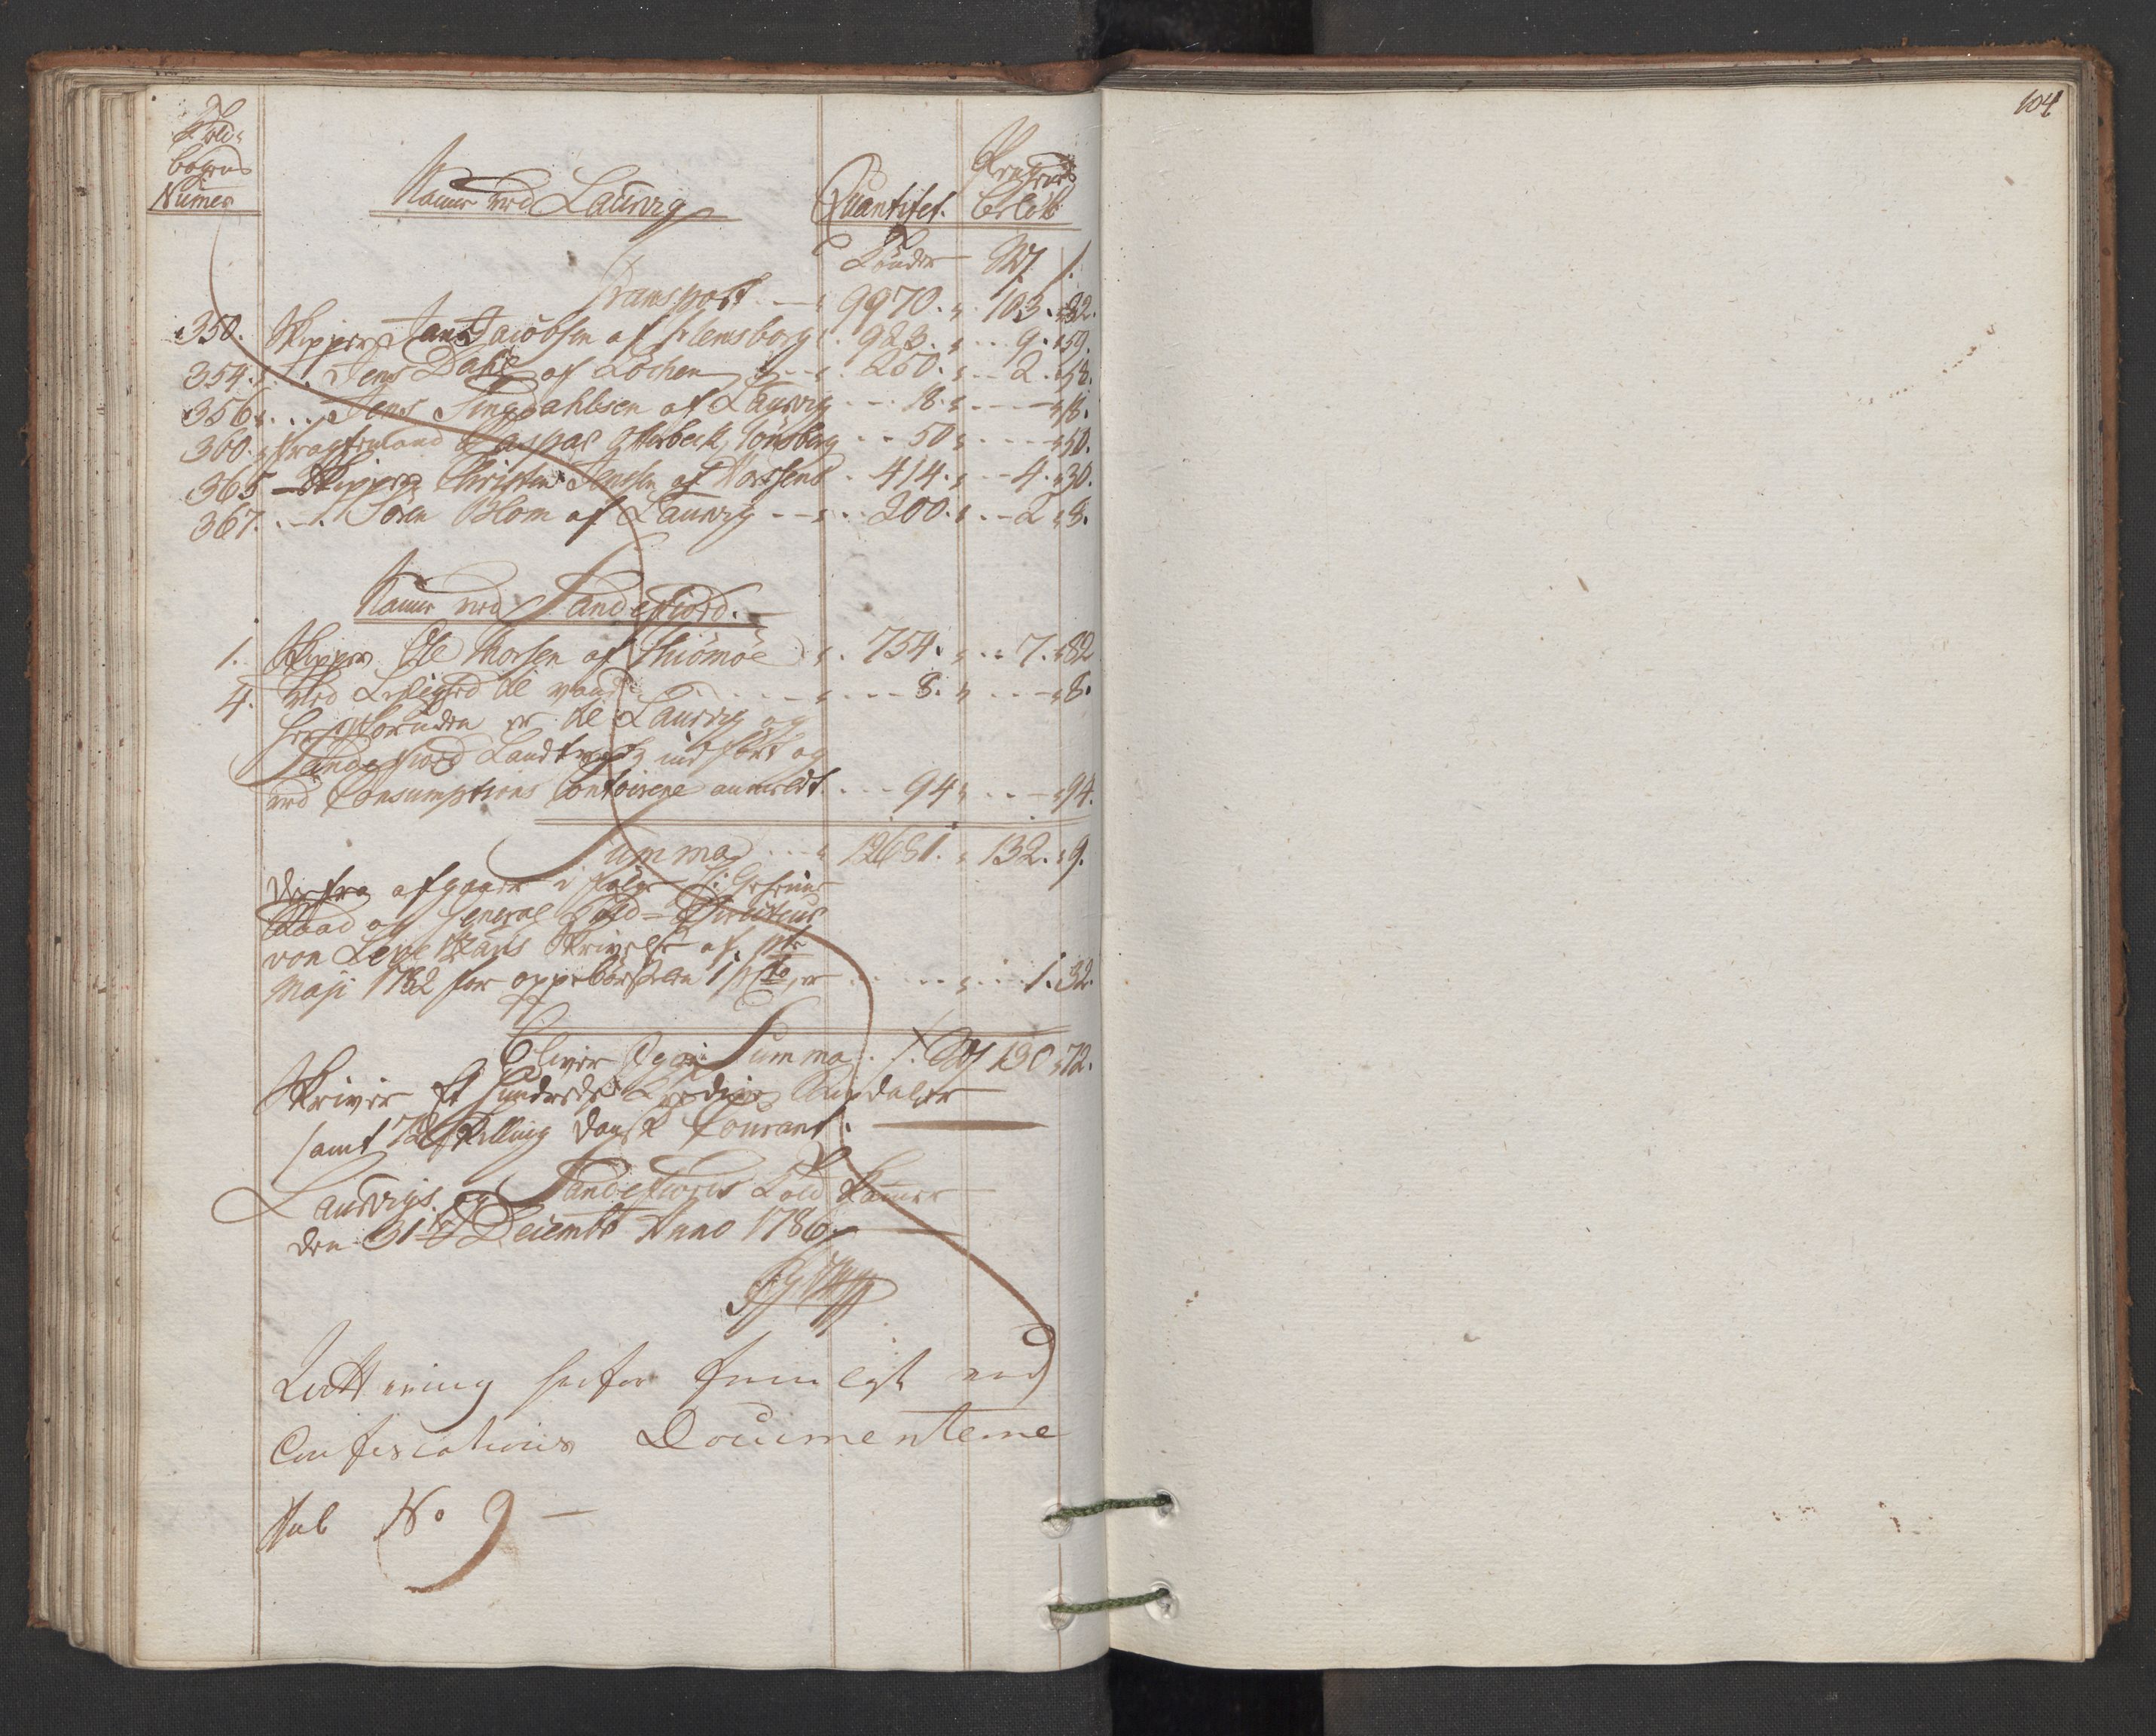 104
Told-
bogens
Numer
Navne ved Laurvig
Quantitet.
Pengenes
beløb
Tønder Rdr s.
Transport 9970. 103. 32.
350. Skipper Jens Jacobsen af Flensborg 923. 9. 59.
354. Jens Dahl af 250. 2. 58.
356. Jens Lingdahlsen af Laurvig 18. 18.
360. Fragtemand Caspar Otterbeck, Tønsberg 50 50.
365 Skipper Christen Jensen af Horssens 414. 4. 30.
367. Søren Blom af Laurvig 200. 2 8.
Navne ved Sandefiord.
1. Skipper Ole Thorsen af Thiømøe 754. 7. 82
4. Ved Leilighed til vands 8. 8.
Herforuden er til Laurvig og
Sandefiord Landverts indført og
ved Consumptions Contoirene anmeldt 94 94.
Summa 12681. 132. 9.
Derfra afgaaer i følge Hr: Geheime
Raad og General Told-Directeur
von Levetzaus Skrivelse af
Maji 1782 for oppebørselen 1 pCto, er 1. 32.
Bliver Igien Summa Rdr 130 72.
Skriver Et Hundrede Tredive Rigsdaler
samt 72 Skilling Dansk Courant.
Laurvigs og Sandefiords Told Kammer
den 31te Decembr Anno 1786.
Qvittering herfor findes ved
Confiscations Documenterne
sub No 9